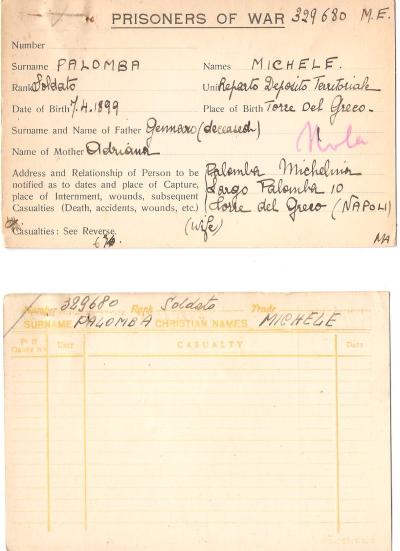 PRISONERS OF WAR 329680 M.E.
Number
Surname PALOMBA Names MICHELE.
Rank Soldato Unit Reparto Deposito Territoriale
Date of Birth 7.4.1899 Place of Birth Torre Del Greco-
Surname and Name of Father Gennaro (deceased)
Name of Mother Adriana
Address and Relationship of Person to be
notified as to dates and place of Capture,
place of Internment, wounds, subsequent
Casualties (Death, accidents, wounds, etc.)
Palomba Michelina
Largo Palomba 10
Torre del Greco (NAPOLI)
(wife)
Casualties: See Reverse.
MA
Number 329680 Rank Soldato Trade
SURNAME PALOMBA CHRISTIAN NAMES MICHELE
Unit CASUALTY Date